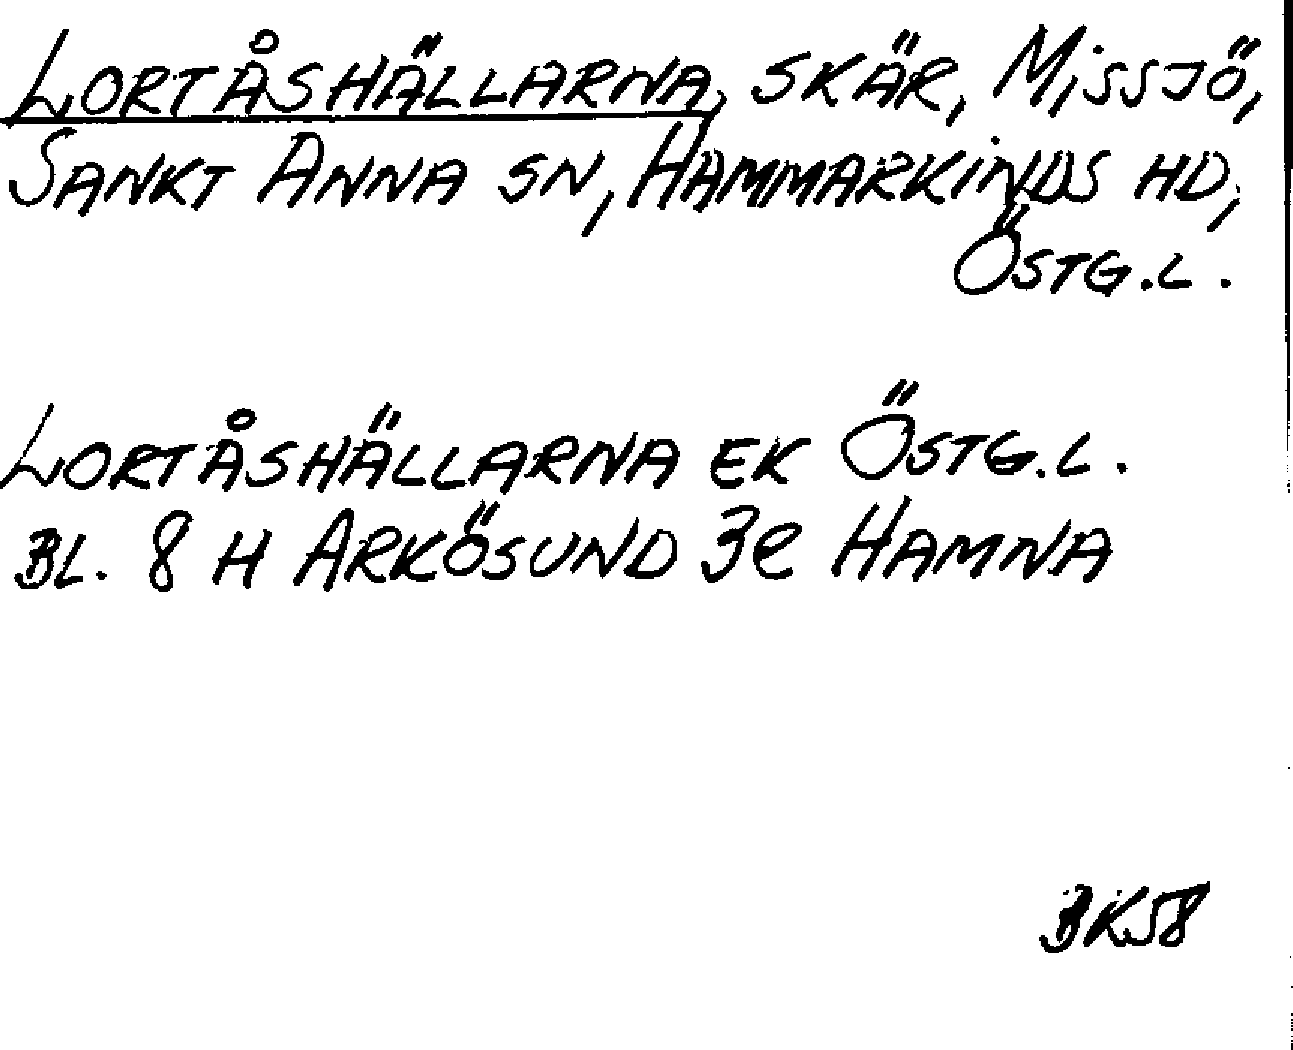 LORTÅSHÄLLARNA, SKÄR, MISSJÖ,
SANKT ANNA SN, HAMMARKINDS HD,
ÖSTG.L.
LORTÅSHÄLLARNA EK ÖSTG.L.
BL. 8 H ARKÖSUND 3e HAMNA
BK58